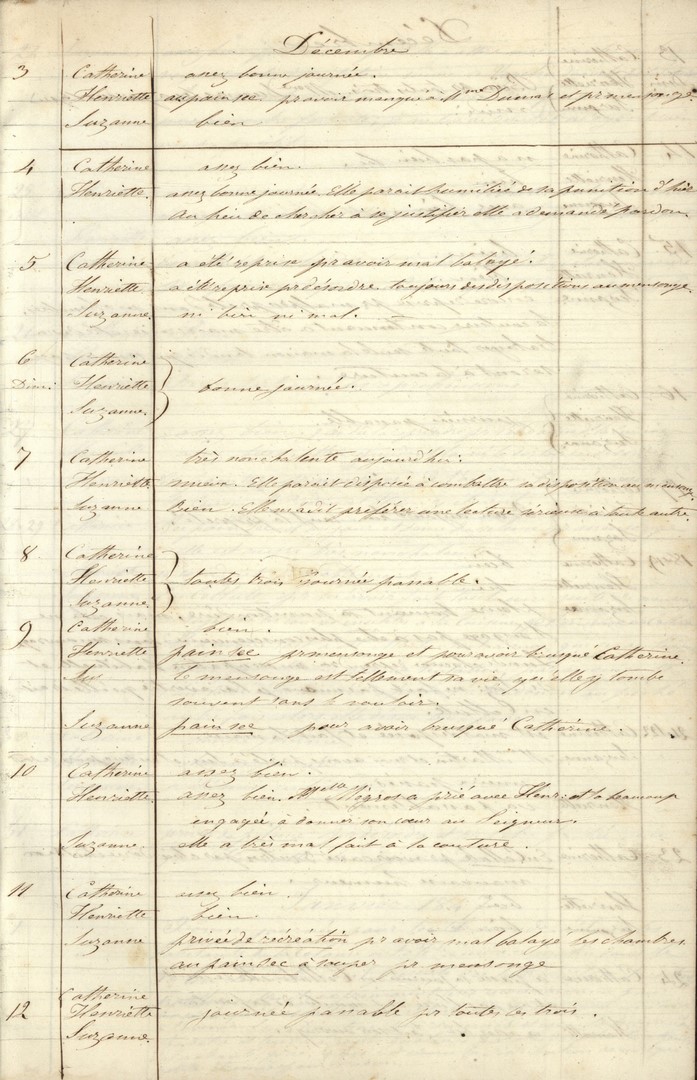 Décembre
3 Catherine assez bonne journée.
Henriette au pain sec pr avoir manqué à Mme Dumas et pr mensonge.
Suzanne bien
4 Catherine assez bien.
Henriette. assez bonne journée. Elle parait humiliée de sa punition d'hier
Au lieu de chercher à se justifier elle a demandé pardon.
5 Catherine a été reprise pr avoir mal balayé.
Henriette a été reprise pr désordre. toujours des dispositions au mensonge.
Suzanne. ni bien ni mal.
6 Catherine
Dim: Henriette bonne journée.
Suzanne.
7 Catherine très nonchalente aujourd'hui.
Henriette mieux. Elle parait disposée à combattre sa disposition au mensong.
Suzanne Bien. Elle m'a dit préférer une lecture sérieuse à toute autre
8 Catherine
Henriette toutes trois journée passable.
Suzanne
9 Catherine bien.
Henriette pain sec pr mensonge et pour avoir brusqué Catherine.
Sus le mensonge est tellement sa vie, qu'elle y tombe
souvent sans le vouloir.
Suzanne pain sec pour avoir brusqué Catherine.
10 Catherine assez bien.
Henriette. assez bien. a prié avec Henr: et l'a beaucoup
engagée à donner son cœur au Seigneur.
Suzanne. elle a très mal fait à la couture.
11 Catherine assez bien.
Henriette bien
Suzanne privée de récréation pr avoir mal balayé les chambres.
au pain sec à souper pr mensonge
12 Catherine
Henriette journée passable pr toutes les trois.
Suzanne.